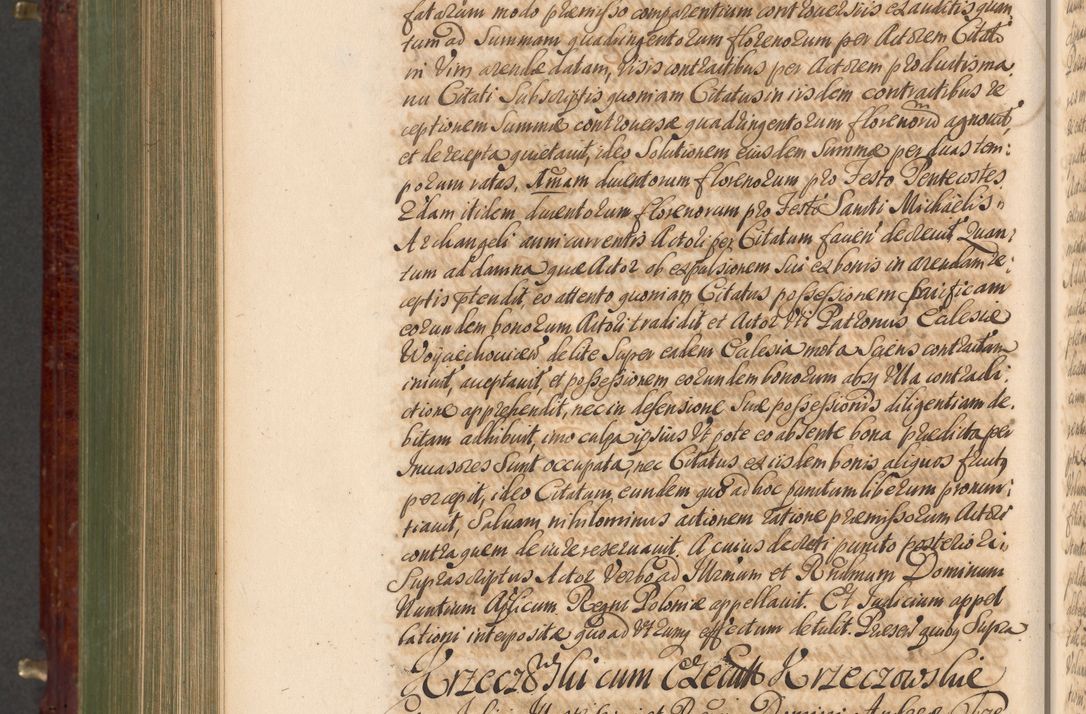 fatarum modo præmisso comparentium controversiis exauditis quan
tum ad Summam quadringentorum florenorum per Actorem Citato
in Vim arendæ datam, visis contractibus per Actorem productis ma
nu Citati Subscriptis quoniam Citatus in iisdem contractibus re
ceptionem Summæ controversæ quadringentorum florenorum agnovit,
et de recepta quietavit, ideo Solutionem eiusdem Summæ per duas tem:
porum ratas, Amam ducentorum florenorum pro Festo Pentecostes
2dam itidem ducentorum florenorum pro Festo Sancti Michaelis
Archangeli anni currentis Actori per Citatum fieri decrevit, Quan:
tum ad damna quæ Actor ob expulsionem Sui ex bonis in arendam re:
ceptis ptendit, eo attento quoniam Citatus possessionem pacificam
eorundem bonorum Actori tradidit, et Actor Uti Patronus Ecclesiæ
Woyciechovicen de lite Super eadem Ecclesia mota Sciens contractum
iniit, acceptavit, et possessionem eorundem bonorum absq Ulla contradi:
ctione apprehendit, nec in defensione Suæ possessionis diligentiam de.
bitam adhibuit, imo culpa ipsius Ut pote eo absente bona prædicta per
Invasores Sunt occupata, nec Citatus ex iisdem bonis aliquos fructus
percepit, ideo Citatum eundem quo ad hoc punctum liberum pronun:
tiavit, Salvam nihilominus actionem ratione præmissorum Actori
contra quem de iure reservavit. A cuius decreti puncto posteriori
Suprascriptus Actor Verbo ad Illrmum et Rndmum Dominum
Nuntium Aplicum Regni Poloniæ appellavit. Et Iudicium appel
lationi interpositæ quo ad Utrumq effectum detulit. Præsen quibus Supra
Krzeczowski cum Krzeczowskie
Domini Andreæ